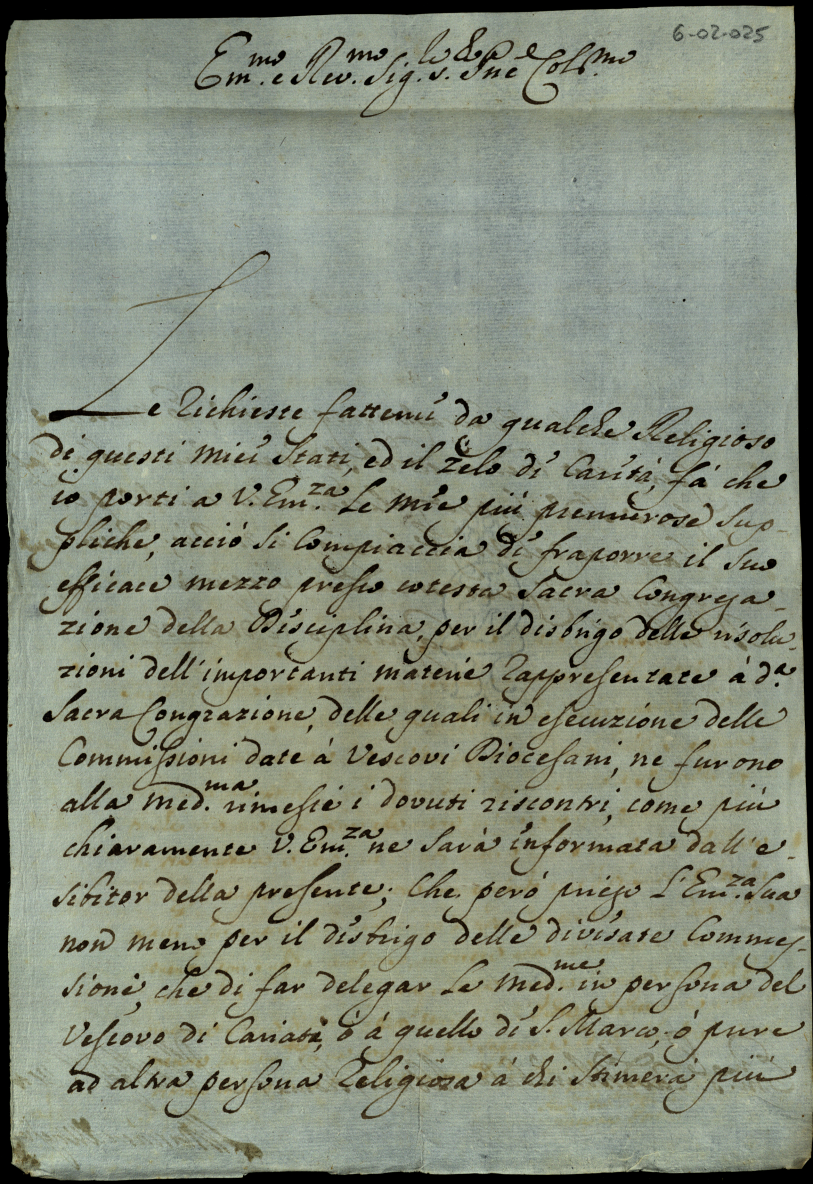 6-02-025
Em.mo e Rev.mo Sig.r Col.mo
Le richieste fattemi da qualche Religioso
di questi miei Stati, ed il zelo di Carità, fà che
io porti a V. Em.za le mie più premurose sup-
pliche, acciò si Compiaccia di fraporre il suo
efficace mezzo presso cotesta Sacra Congrega-
zione della Disciplina, per il disbrigo delle risolu-
zioni dell'importanti materie rappresentate à d.a
Sacra Congrazione, delle quali in esecuzione delle
Commissioni date à Vescovi Diocesani, ne furono
alla med.ma rimessi i dovuti riscontri, come più
chiaramente V. Em.za ne sarà informata dall'e-
sibitor della presente; Che però priego l'Em.za Sua
non meno per il disbrigo delle divisate Commes-
sioni, che di far delegar le med.me in persona del
Vescovo di Cariati, ò à quello di S. Marco, ò pure
ad altra persona Religiosa à chi stimerà più